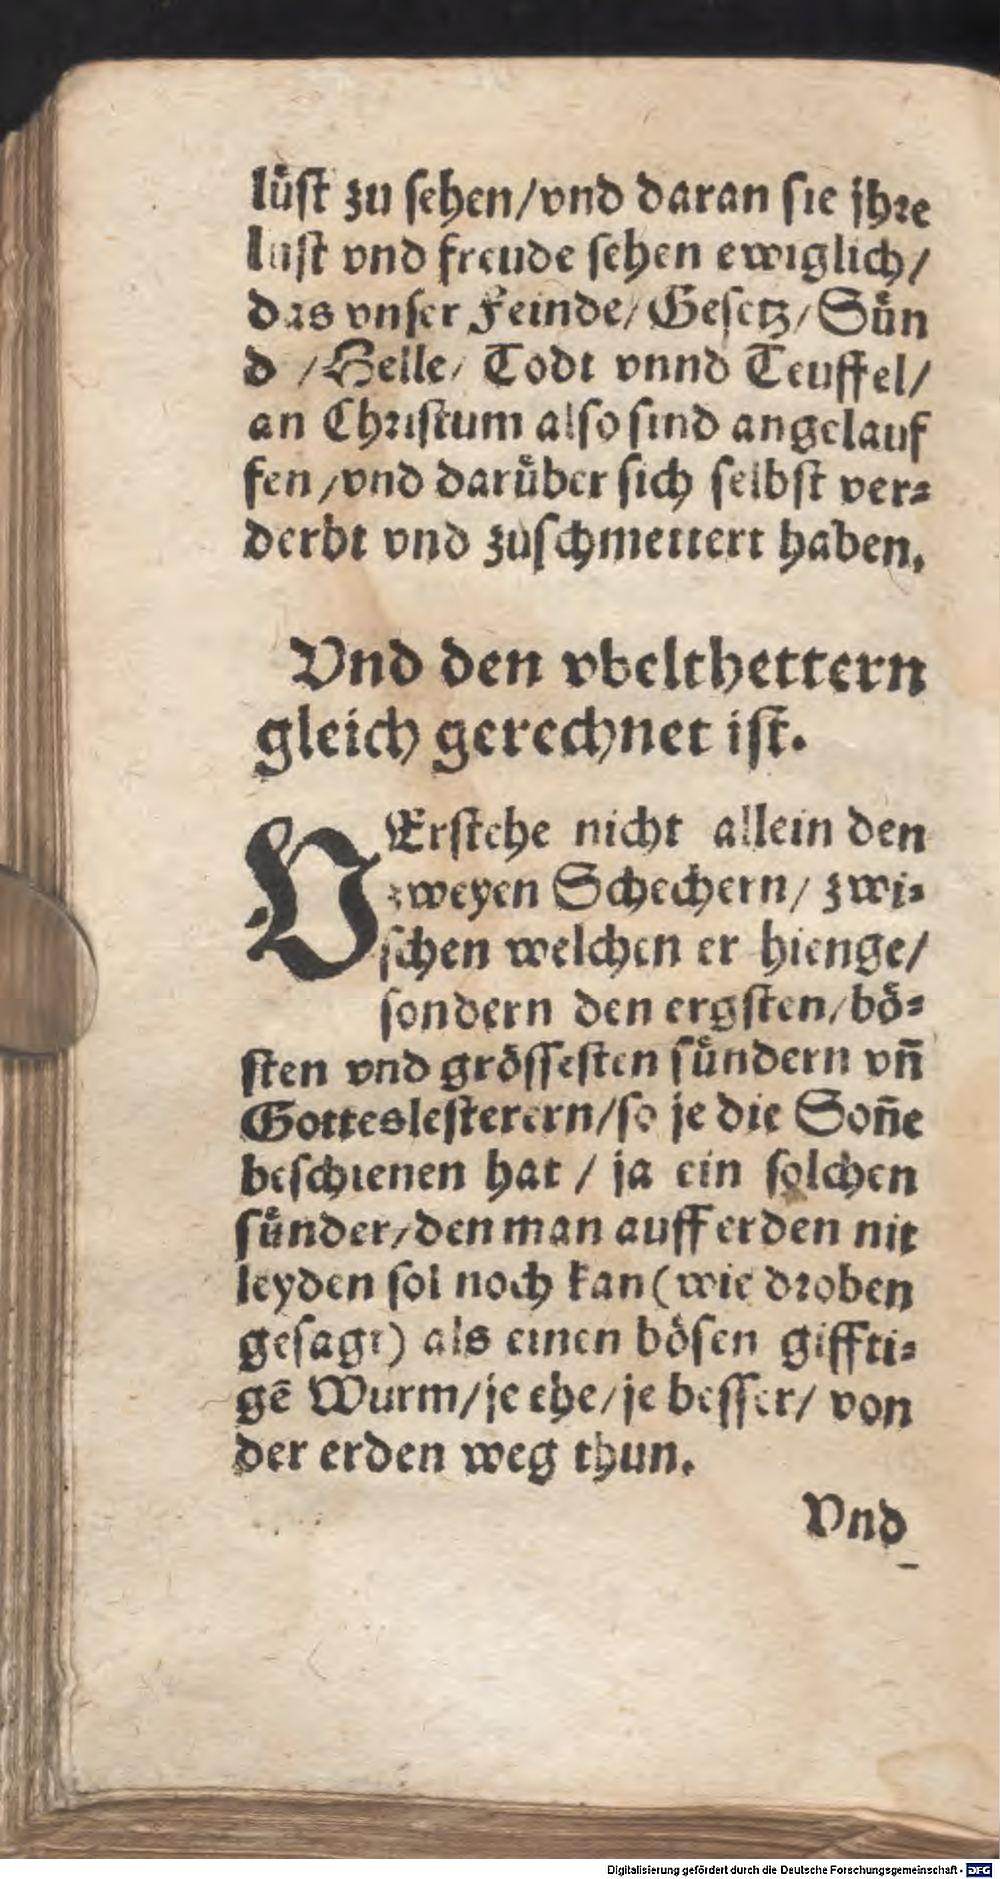 lüſt zu ſehen/vnd daran ſie jhre
luſt vnd freude ſehen ewiglich/
das vnſer Feinde/Geſetz/Sün
d /Helle/ Todt vnnd Teuffel/
an Chriſtum alſo ſind angelauf
fen/vnd darüber ſich ſelbſt ver⸗
derbt vnd zuſchmettert haben.
Vnd den vbelthettern
gleich gerechnet iſt.
VErſtehe nicht allein den
zweyen Schechern/ zwi⸗
ſchen welchen er hienge/
ſondern den ergſten/bö⸗
ſten vnd gröſſeſten ſündern vñ
Gottesleſterern/ſo je die Soñe
beſchienen hat / ja ein ſolchen
ſünder/den man auff erden nit
leyden ſol noch kan (wie droben
geſagt) als einen böſen giffti⸗
gē Wurm/je ehe/je beſſer/ von
der erden weg thun.
Vnd
Digitalisierung gefördert durch die Deutsche Forschungsgemeinschaft - DFG